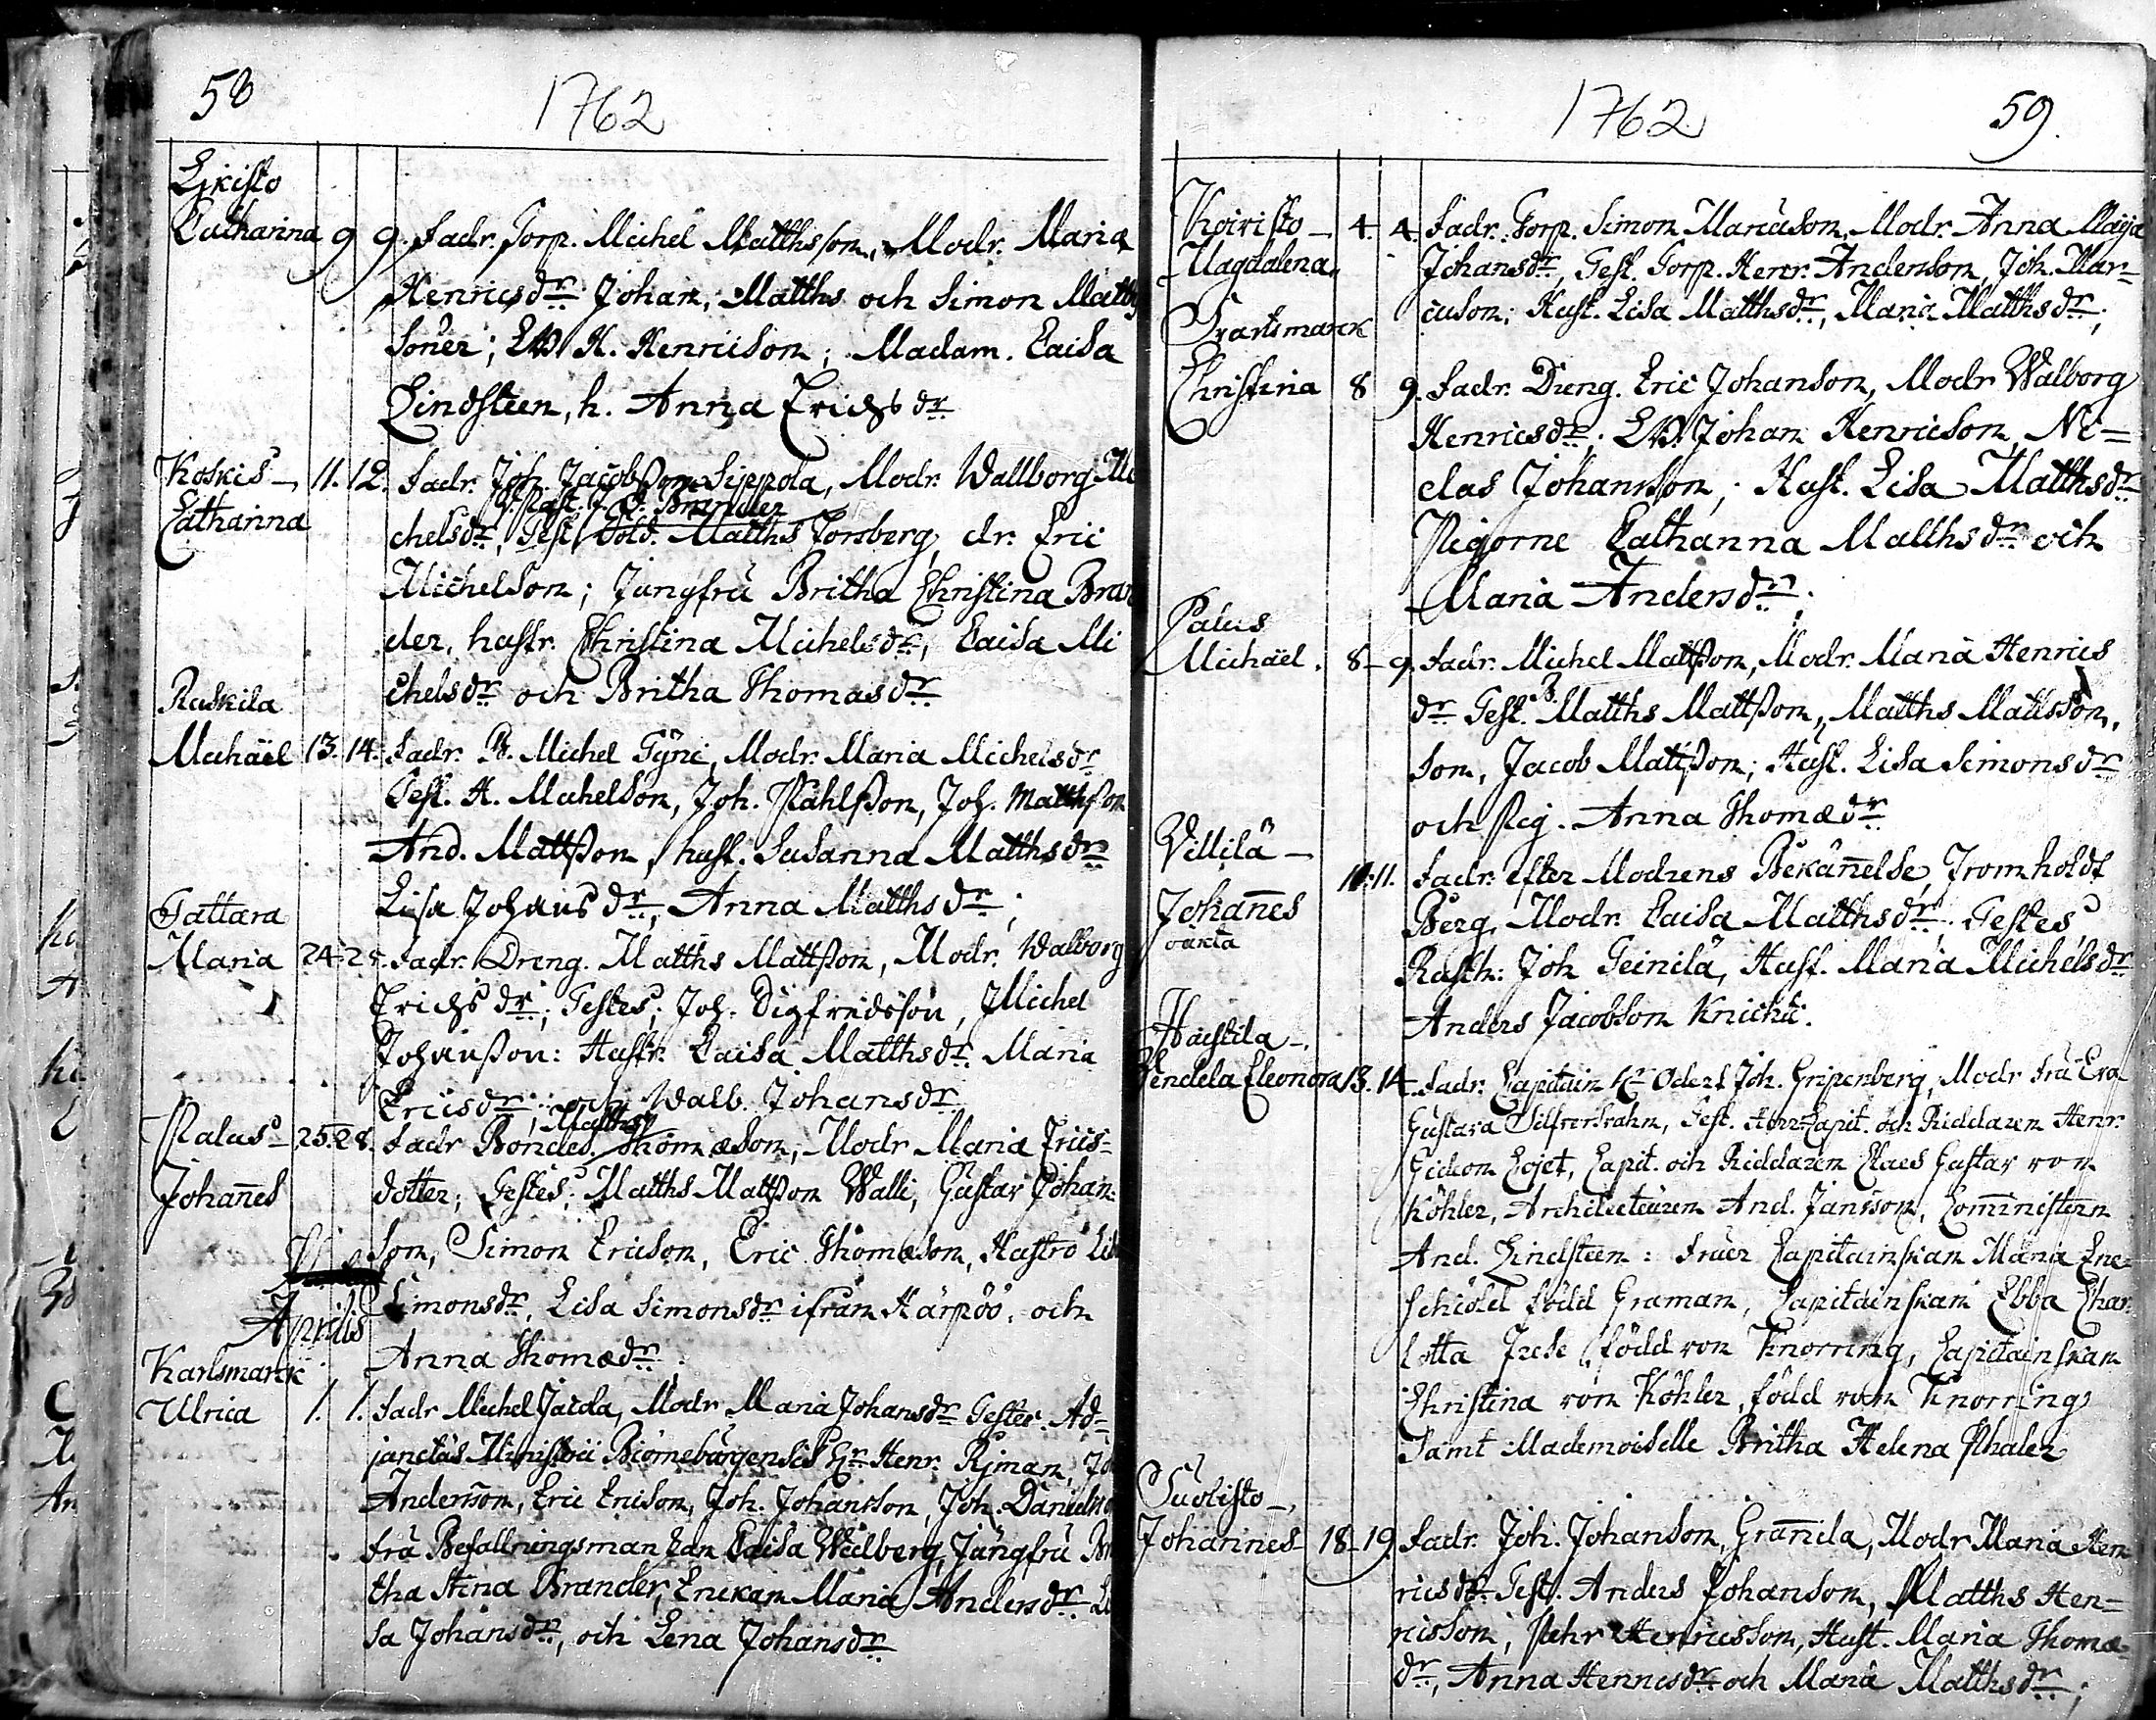 58
1762
Ljkisto
Catharina 9 9. Fadr. Torp. Michel Matthsson, Modr. Maria
Henricsdr. Johan, Matths och Simon Matths
söner; LW. H. Henricson; Madam. Caisa
Lindsteen, h. Anna Erichsdr.
Koskis 11. 12. Fadr. Joh. Jacobsson Sippola, Modr. Wallborg Mi
V. Past. J. C. Brander
Catharina chelsdr, Test. Sold. Matths Forsberg, dr. Eric
Michelson; Jungfru Britha Christina Bran
der, hustr. Christina Michelsdr, Caisa Mi
chelsdr och Britha Thomasdr
Raskila
Michaël 13. 14. Fadr. B. Michel Tÿni, Modr. Maria Michelsdr
Test. H. Michelson, Joh. Påhlsson, Joh. Matthsson
And. Mattsson, hust. Susanna Matthsdr
Lisa Johansdr, Anna Matthsdr;
Tattara
Maria 24-25. Fadr. Dreng. Matths Mattsson, Modr. Walborg
Erichsdr; Testes; Joh. Sigfridsson, Michel
Johansson: Hustr. Caisa Matthsdr. Maria
Ericsdr; och Walb. Johansdr
Matths
Palus 25. 28. Fadr Bonden. Thomæson, Modr Maria Erics-
Johañes dotter; Testes; Matths Mattsson Walli, Gustav Johan-
son, Simon Ericson, Eric Thomæson, Hustro Lisa
Simonsdr, Lisa Simonsdr ifrån Härpöö, och
Aprilis
Anna Thomædr.
Karlsmarck
Ulrica 1. 1. Fadr Michel Jacola, Modr Maria Johansdr Testes. Ad-
janctus Ministerii Biörneburgensis Hr Henr. Rjman, Jo
Anderson, Eric Ericson, Joh. Johansson, Joh. Danielsso
Fru Befallningsmanskan Caisa Widberg, Jungfru Bri
tha Stina Brander, Enckan Maria Andersdr. Li
sa Johansdr, och Lena Johansdr
1762 59.
Koivisto 4. 4. Fadr. Torp. Simon Marcuson, Modr. Anna Maja
Magdalena. Johansdr, Test. Torp. Henr. Anderson, Joh. Mar-
cuson; Hust. Lisa Matthsdr, Maria Matthsdr;
Svartsmarck
Christina 8 9. Fadr. Dreng. Eric Johanson, Modr Walborg
Henricsdr; LW. Johan Henricson, Ni-
clas Johansson; Hust. Lisa Matthsdr
Pigorne Catharina Matthsdr och
Maria Andersdr;
Palus
Michaël. 8- 9. Fadr. Michel Mattsson, Modr. Maria Henrics
dr Test. B. Matths Mattsson, Matths Mattsson,
son, Jacob Mattsson; Hust. Lisa Simonsdr
och Pig. Anna Thomædr
Villilä 10. 11. Fadr. efter Modrens Bekäñelse, Tromholdt
Johañes Berg, Modr. Caisa Matthsdr; Testes
oäkta
Rusth: Joh Teinilä, Hust. Maria Michelsdr
Anders Jacobson Knichti.
Haistila
Vendela Eleonora 13. 14. Fadr. Capitain Hr Odert Joh. Gripenberg, Modr Fru Eva
Gustava Silfversvahn, Test. Herr Capit. och Riddaren Henr.
Gideon Cojet, Capit. och Riddaren Claes Gustav von
Köhler, Architecteuren And. Jansson, Com̃inistern
And. Lindsteen: Fruer Capitainskan Maria Ene-
schiöld född Graman, Capitainskan Ebba Char-
lotta Frese född von Knorring, Capitainskan
Christina von Köhler, född von Knorring
Samt Mademoiselle Britha Helena Phaler
Suolisto
Johannes 18-19. Fadr. Joh. Johanson, Grañila, Modr Maria Hen-
ricsdr. Test. Anders Johanson, Matths Hen-
ricsson, Pehr Henricsson, Hust. Maria Thomæ-
dr, Anna Henricsdr och Maria Matthsdr;